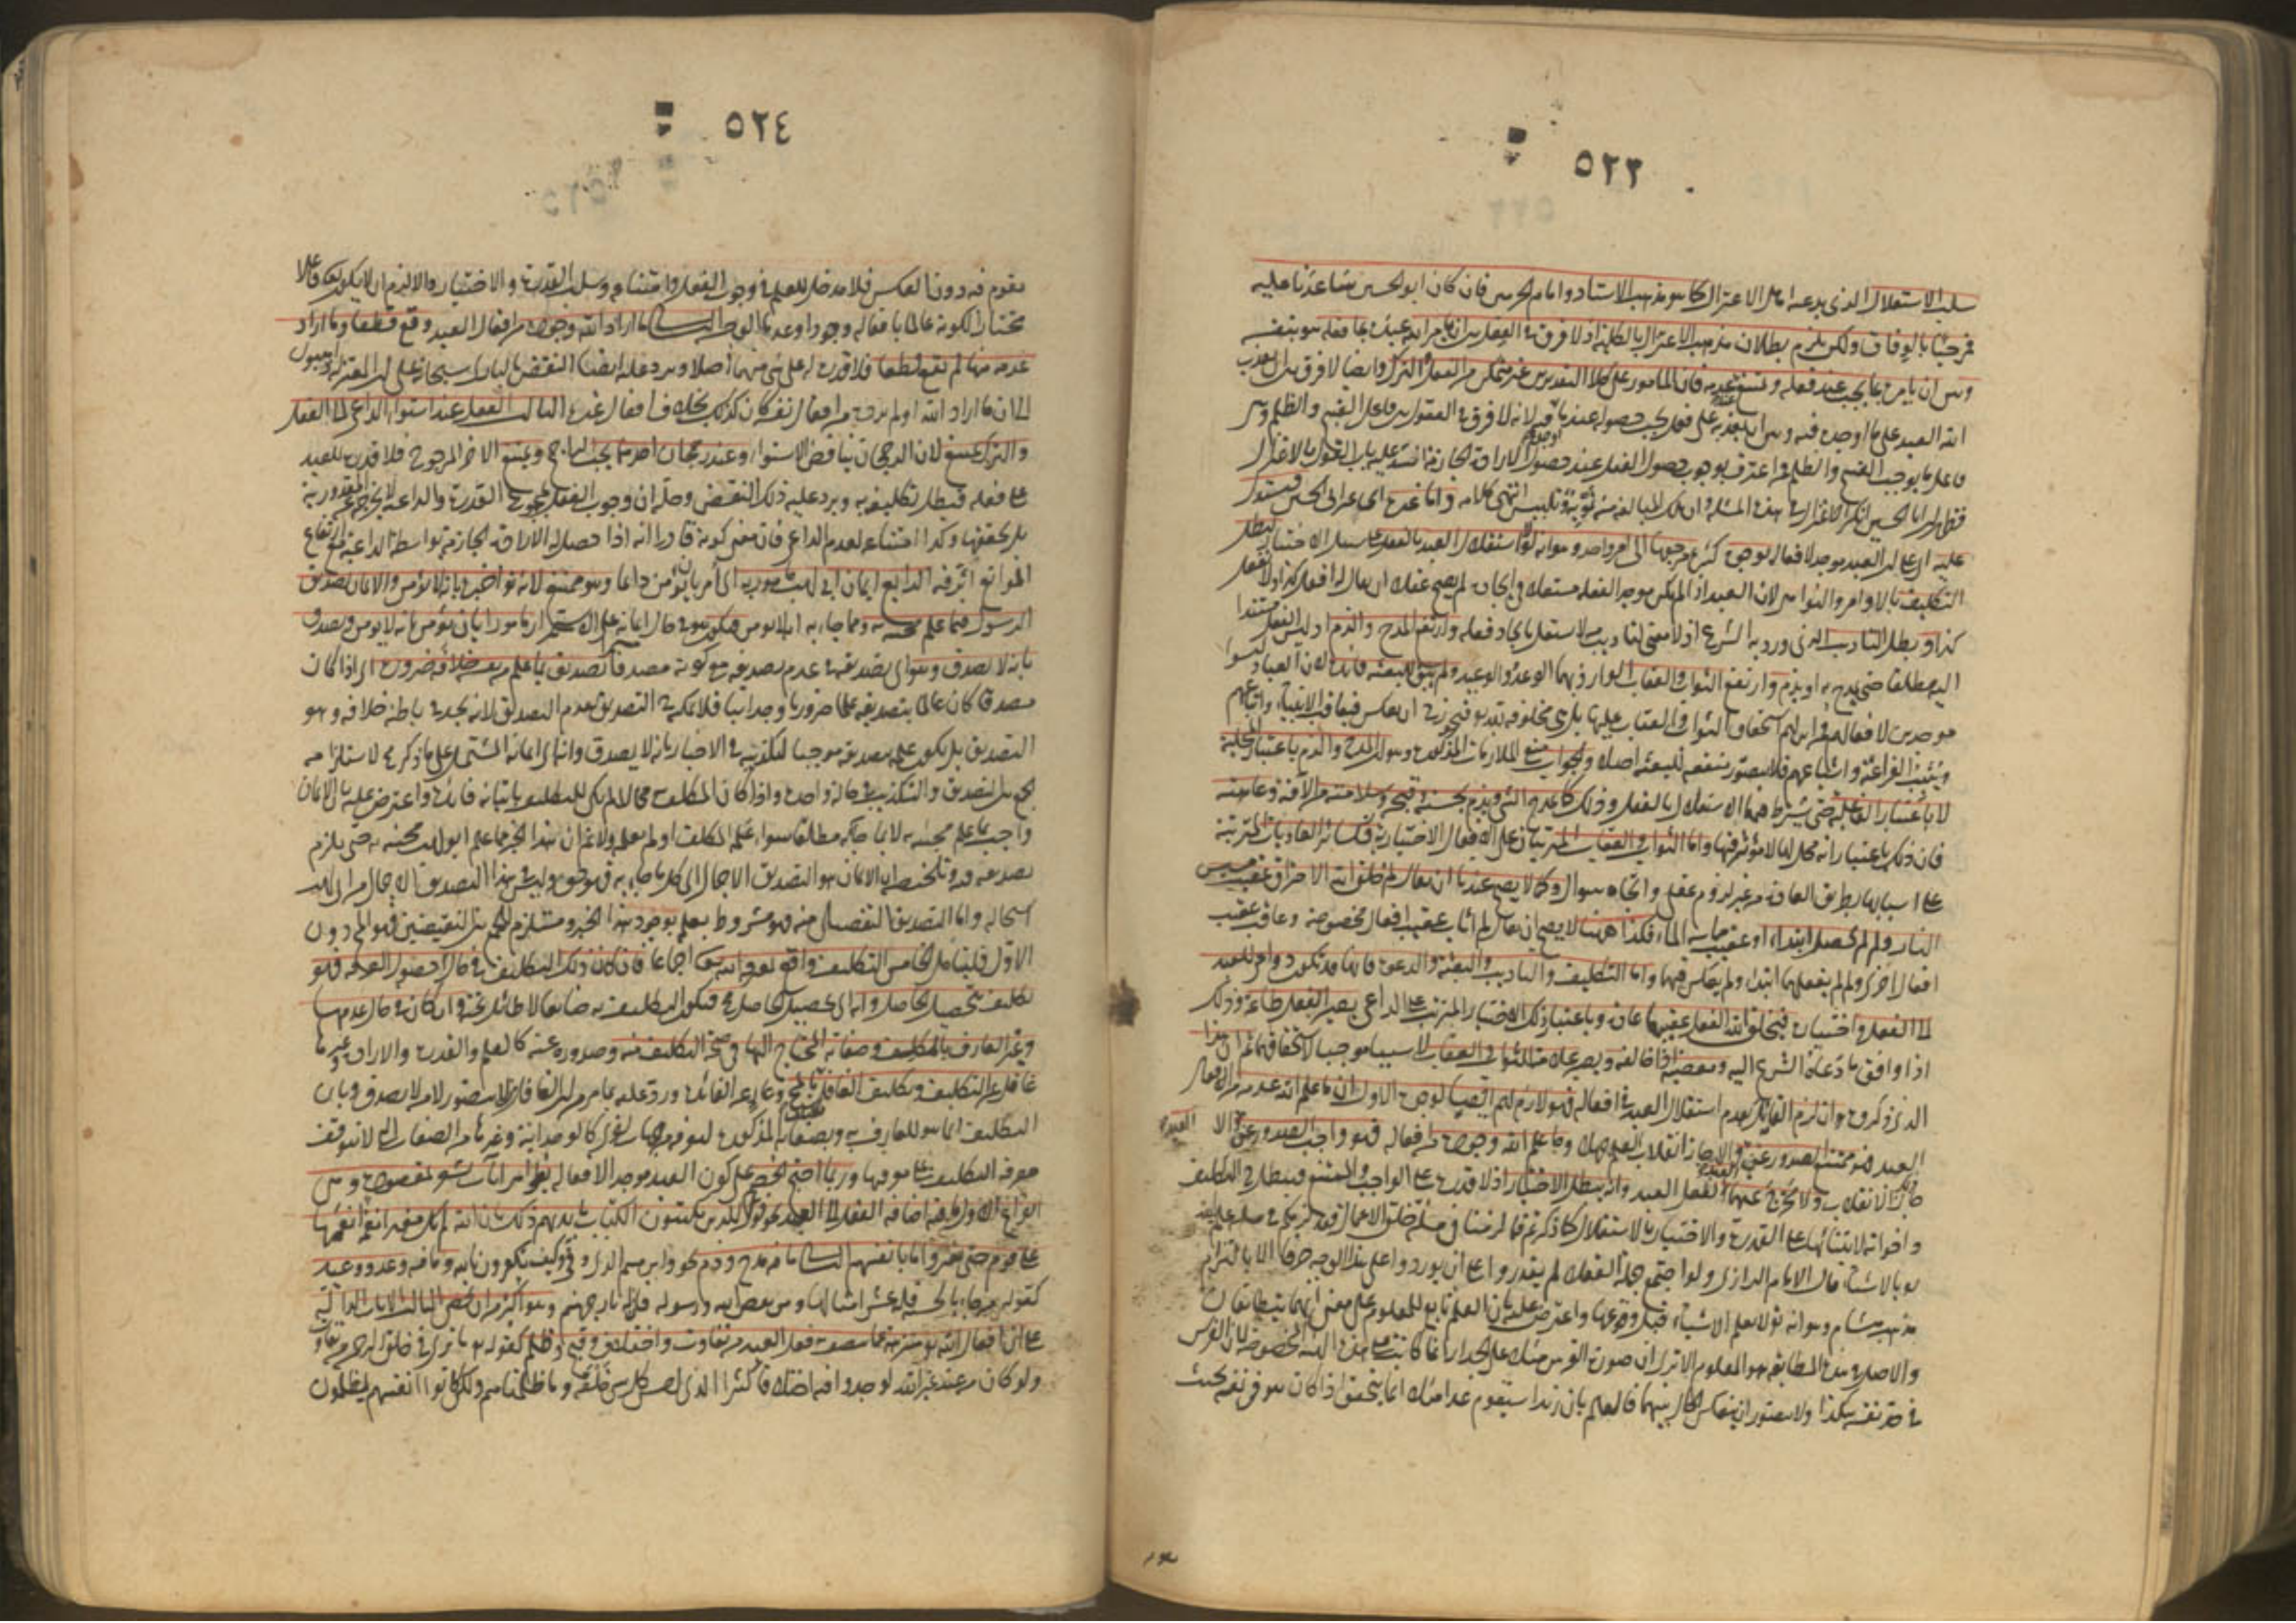 ٥٢٣
سلب الاستقلال الذى يدعيه اهل الاعتزال كما هو مذهب الاستاذ وامام الحرمين فان كان ابو الحسين ساعدنا عليه
فمرحبا بالوفاق ولكن يلزم بطلان مذهب الاعتزال بالكلية اذ لا فرق فى العقل بين ان يأمر الله عبيده بما فعله هو بنفسه
وبين ان يأمر بما يجب عند فعله ويمتنع عند عدمه فان المأمور على كلا التقديرين غير متمكن من الفعل والترك وايضا لا فرق بين تعذيب
الله العبد على ما اوجده فيه وبين ان يعذبه على فعل يجب حصوله عند ما اوجده فيه لانه لا فرق فى العقول بين فاعل القبيح والظلم وبين
فاعل ما يوجب القبح والظلم فمن اعترف بوجوب حصول الفعل عند حصول الارادة الجازمة انسد عليه باب القول بالاعتزال
فظهر ان ابا الحسين انكر الاعتزال فى هذه المسئلة وان تلك المبالغة منه تمويه وتلبيس انتهى كلامه واما غيره اى غير ابى الحسين فيستدل
عليه اى على ان العبد موجد لافعاله بوجوه كثيرة مرجعها الى امر واحد وهو انه لولا استقلال العبد بالفعل على سبيل الاختيار لبطل
التكليف بالاوامر والنواهى لان العبد اذا لم يكن موجدا لفعله مستقلا فى ايجاده لم يصح عقلا ان يقال له افعل كذا ولا تفعل
كذا وبطل التأديب الذى ورد به الشرع اذ لا معنى لتأديب من لا يستقل بايجاد فعله وارتفع المدح والذم اذ ليس الفعل مستندا
اليه مطلقا حتى يمدح به او يذم وارتفع الثواب والعقاب الوارد بهما الوعد والوعيد ولم يبق للبعثة فائدة لان العباد ليسوا
موجدين لافعالهم فمن اين لهم استحقاق الثواب والعقاب عليها بل هى مخلوقة لله تعالى فيجوز ان يعكس فيعاقب الانبياء واتباعهم
ويثيب الفراعنة واشياعهم فلا يتصور منفعة للبعثة اصلا والجواب منع الملازمات المذكورة وهو ان المدح والذم باعتبار المحلية
لا باعتبار الفاعلية حتى يشترط فيهما الاستقلال بالفعل وذلك كما يمدح الشئ ويذم بحسنه وقبحه وسلامته من الآفة وعاهته
فان ذلك باعتبار انه محل لها لا مؤثر فيها واما الثواب والعقاب المترتبان على الافعال الاختيارية فكسائر العاديات المترتبة
على اسبابها بطريق العادة من غير لزوم عقلى واتجاه سؤال وكما لا يصح عندنا ان يقال لم خلق الله الاحراق عقيب مسيس
النار ولم لم يحصل ابتداء او عقيب مماسة الماء فكذا ههنا لا يصح ان يقال لم اثاب عقيب افعال مخصوصة وعاقب عقيب
افعال اخرى ولم لم يفعلهما ابتداء ولم يعكس فيهما واما التكليف والتأديب والبعثة والدعوة فانها قد تكون دواعى للعبد
الى الفعل واختياره فيخلق الله الفعل عقيبها عادة وباعتبار ذلك الاختيار المترتب على الداعى يصير الفعل طاعة وذلك
اذا وافق ما دعاه الشرع اليه ومعصية اذا خالفه ويصير علامة للثواب والعقاب لا سببا موجبا لاستحقاقهما ثم ان هذا
الذى ذكروه وان لزم القائلين بعدم استقلال العبد فى افعاله فهو لازم لهم ايضا لوجوه الاول ان ما علم الله عدمه من افعال
العبد فهو ممتنع الصدور عن العبد والا جاز انقلاب العلم جهلا وما علم الله وجوده من افعاله فهو واجب الصدور عن العبد والا
جاز ذلك الانقلاب ولا مخرج عنهما لفعل العبد وانه يبطل الاختيار اذ لا قدرة على الواجب والممتنع فيبطل حينئذ التكليف
واخواته لابتنائها على القدرة والاختيار بالاستقلال كما ذكرتم فما لزمنا فى مسئلة خلق الاعمال فقد لزمكم فى مسئلة علم الله
بالاشياء قال الامام الرازى ولو اجتمع جملة العقلاء لم يقدروا على ان يوردوا على هذا الوجه حرفا الا بالتزام
مذهب هشام وهو انه تعالى لا يعلم الاشياء قبل وقوعها واعترض عليه بان العلم تابع للمعلوم على معنى انهما يتطابقان
والاصل فى هذه المطابقة هو المعلوم الا ترى ان صورة الفرس مثلا على الجدار انما كانت على هذه الهيئة المخصوصة لان الفرس
فى حد نفسه هكذا ولا يتصور ان ينعكس الحال بينهما فالعلم بان زيدا سيقوم غدا مثلا انما يتحقق اذا كان هو فى نفسه بحيث
٥٢٤
يقوم فيه دون العكس فلا مدخل للعلم فى وجوب الفعل وامتناعه وسلب القدرة والاختيار والا لزم ان لا يكون تعالى فاعلا
مختارا لكونه عالما بافعاله وجودا وعدما الوجه الثانى ما اراد الله وجوده من افعال العبد وقع قطعا وما اراد
عدمه منها لم يقع قطعا فلا قدرة له على شئ منهما اصلا ويرد عليه ايضا النقض بالبارى سبحانه على ان المعتزلة
الثالث الفعل عند استواء الداعى الى الفعل
والترك يمتنع لان الرجحان يناقض الاستواء وعند رجحان احدهما يجب الراجح ويمتنع الآخر المرجوح فلا قدرة للعبد
على فعله فيبطل تكليفه به ويرد عليه ذلك النقض وحله ان وجوب الفعل بمجموع القدرة والداعية لا يخرجه عن المقدورية
بل يحققها وكذا امتناعه لعدم الداعى فان معنى كونه قادرا انه اذا حصل له الارادة الجازمة بواسطة الداعية مع ارتفاع
الموانع اثر فيه الرابع ايمان ابى لهب مأمور به اى امر بان يؤمن دائما وهو ممتنع لانه تعالى اخبر بانه لا يؤمن والايمان تصديق
الرسول فيما علم مجيئه به ومما جاء به انه لا يؤمن فيكون هو فى حال ايمانه على الاستمرار مأمورا بان يؤمن بانه لا يؤمن ويصدق
بانه لا يصدق وهو اى تصديقه فى عدم تصديقه مع كونه مصدقا تصديق بما علم من نفسه خلافه ضرورة اى اذا كان
مصدقا كان عالما بتصديقه علما ضروريا وجدانيا فلا يمكنه التصديق بعدم التصديق لانه يجد فى باطنه خلافه وهو
التصديق بل يكون علمه بتصديقه موجبا لتكذيبه فى الاخبار بانه لا يصدق وانه اى ايمانه المشتمل على ما ذكر محال لاستلزامه
الجمع بين التصديق والتكذيب فى حالة واحدة واذا كان المكلف به محالا لم يكن للتكليف باتيانه فائدة واعترض عليه بان الايمان
واجب بما علم مجيئه به لا بما جاء به مطلقا سواء علمه المكلف او لم يعلمه ولا نسلم ان هذا الخبر مما علم ابو لهب مجيئه به حتى يلزم
تصديقه فيه وتلخيصه ان الايمان هو التصديق الاجمالى اى كل ما جاء به فهو حق وليس فى هذا التصديق الاجمالى من ابى لهب
استحالة واما التصديق التفصيلى منه فهو مشروط بعلمه بوجود هذا الخبر ومستلزم للجمع بين النقيضين فهو المحال دون
الاول فليتأمل الخامس التكليف واقع بمعرفة الله تعالى اجماعا فان كان ذلك التكليف فى حال حصول المعرفة فهو
تكليف بتحصيل الحاصل وانه اى تحصيل الحاصل محال فيكون التكليف به ضائعا لا طائل تحته وان كان فى حال عدمها
وغير العارف بالمكلف وصفاته المحتاج اليها فى صحة التكليف منه وصدوره عنه كالعلم والقدرة والارادة وغيرها
غافل عن التكليف وتكليف الغافل محال وعارٍ عن الفائدة وردّ عليه بما مر من ان الغافل من لا يتصور لا من لا يصدق وبان
التكليف انما هو للعارف به وبصفاته المذكورة ليعرفه من جهات اخرى كالوحدانية وغيرها من الصفات التى لا تتوقف
معرفة التكليف على معرفتها وربما احتج الخصم على كون العبد موجدا لافعاله بظواهر آيات تشعر بمقصوده وهى
انواع الاول ما فيه اضافة الفعل الى العبد نحو فويل للذين يكتبون الكتاب بايديهم ذلك بان الله لم يك مغيرا نعمة انعمها
على قوم حتى يغيروا ما بانفسهم الثانى ما فيه مدح وذم نحو وابراهيم الذى وفى كيف تكفرون بالله وما فيه وعد ووعيد
كقوله من جاء بالحسنة فله عشر امثالها ومن يعص الله ورسوله فان له نار جهنم وهو اكثر من ان يحصى الثالث الآيات الدالة
على ان افعال الله منزهة عما يتصف به فعل العبد من تفاوت واختلاف وقبح وظلم كقوله ما ترى فى خلق الرحمن من تفاوت
ولو كان من عند غير الله لوجدوا فيه اختلافا كثيرا الذى احسن كل شئ خلقه وما ظلمناهم ولكن كانوا انفسهم يظلمون